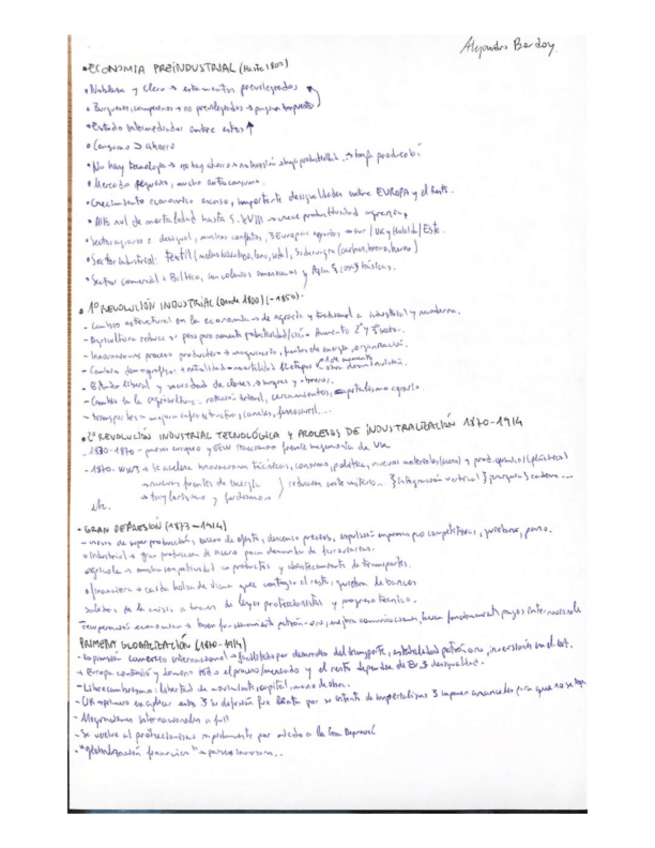 Alejandro Berdoy.
• ECONOMIA PREINDUSTRIAL (Hasta 1800)
• Nobleza y Clero → estamentos previlegiados
• Burgueses, campesinos → no previlegiados → pagan impuestos
• Estado intermediador entre estos ↑
• Consumo > ahorro
• No hay tecnología → no hay ahorro → no inversión → baja productividad → baja producció
• Mercado pequeño, mucho autoconsumo.
• Crecimiento economico escaso, importante desigualdades entre EUROPA y el Resto.
• Alto nivel de mortalidad hasta S. XVIII → crece productividad agraria,
• Sector agrario: desigual, muchos conflictos, 3 Europas agrarias → sur / UK y Holanda / Este.
• Sector industrial: textil (lana, seda), Siderurgia (carbon, hierro, horno)
• Sector comercial → Báltico, con colonias americanas y Asia básicas.
• 1º REVOLUCIÓN INDUSTRIAL (Desde 1800) (-1850).
- Cambio estructural en la economia → de agraria y tradicional a industrial y moderna.
- Agricultura reduce pero aumenta productividad Aumento 2º y 3º sector.
- Innovaciones proceso productivo → maquinaria, fuentes de energía, organización.
- Cambio demografico → natalidad mortalidad
- Estado liberal y sociedad de clases → burgues y obreros.
- Cambio en la agricultura: rotación trienal, cercamientos, capitalismo agrario.
- transportes → mejora infraestructuras, canales, ferrocarril...
• 2º REVOLUCIÓN INDUSTRIAL TECNOLÓGICA Y PROCESOS DE INDUSTRALIZACIÓN 1870-1914
- 1830-1870 - paises europeos y EEUU reaccionan frente hegemonía de UK
- 1870-WW1 → Se acelera innovaciones técnicas, consumo, política, nuevos materiales (acero) y prod. quimicos (plásticos)
→ nuevas fuentes de energía
→ taylorismo y fordismo
reducen coste unitario... integración vertical cadena...
etc.
• GRAN DEPRESIÓN (1873-1914)
- crisis de superproducción, exceso de oferta, descenso precios, expulsión empresas poco competitivas, quiebras, paro.
• industrial → gran produccion de acero para demanda de ferrocarriles.
agrícola → mucha competividad en productos y abaratecimiento de transportes.
• financiera → caida bolsa de Viena que contagia el resto, quiebra de bancos
salida de la crisis a traves de leyes proteccionistas y progreso técnico.
Recuperación economica → buen funcionamiento patrón-oro, mejora comunicaciones, buen funcionamiento pagos internacionale
PRIMERA GLOBALIZACIÓN (1870-1914)
- Expansión comercio internacional → facilitado por desarrollo del transporte, estabilidad patrón oro, inversiones en el ext.
→ Europa controla y domina todo el proceso/mercado y el resto depende de Eu. desigualdades.
- Librecambismo: libertad de movimiento capital, mano de obra.
- UK → primero en aplicar estos su difusión fue lenta por su intento de imperialismo
- Migraciones internacionales a full
- Se vuelve al proteccionismo rapidamente por miedo a la Gran Depresió
- "globalización financiera" → paises inversores..